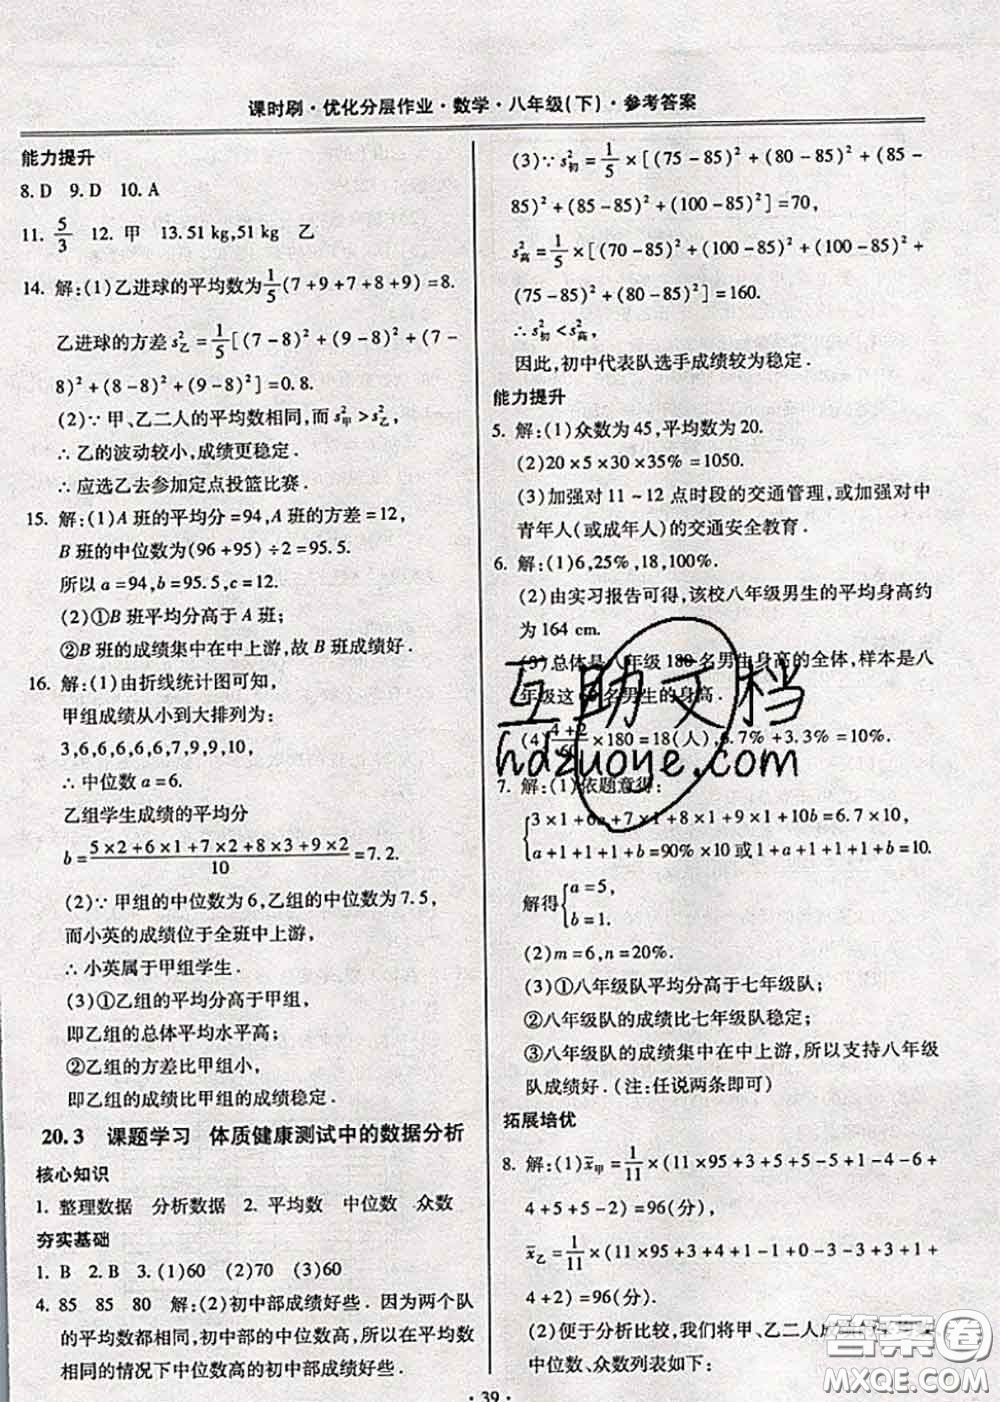 课时刷·优化分层作业·数学·八年级(下)·参考答案
能力提升
8. D 9. D 10. A
11. 5/3 12. 甲 13. 51 kg,51 kg 乙
14. 解:(1)乙进球的平均数为1/5(7+9+7+8+9)=8.
乙进球的方差s²乙=1/5[(7-8)²+(9-8)²+(7-
8)²+(8-8)²+(9-8)²]=0.8.
(2)∵甲、乙二人的平均数相同,而s²甲>s²乙,
∴乙的波动较小,成绩更稳定.
∴应选乙去参加定点投篮比赛.
15. 解:(1)A班的平均分=94,A班的方差=12,
B班的中位数为(96+95)÷2=95.5.
所以a=94,b=95.5,c=12.
(2)①B班平均分高于A班;
②B班的成绩集中在中上游,故B班成绩好.
16. 解:(1)由折线统计图可知,
甲组成绩从小到大排列为:
3,6,6,6,6,6,7,9,9,10,
∴中位数a=6.
乙组学生成绩的平均分
b=(5×2+6×1+7×2+8×3+9×2)/10=7.2.
(2)∵甲组的中位数为6,乙组的中位数为7.5,
而小英的成绩位于全班中上游,
∴小英属于甲组学生.
(3)①乙组的平均分高于甲组,
即乙组的总体平均水平高;
②乙组的方差比甲组小,
即乙组的成绩比甲组的成绩稳定.
20.3 课题学习 体质健康测试中的数据分析
核心知识
1. 整理数据 分析数据 2. 平均数 中位数 众数
夯实基础
1. B 2. B 3. (1)60 (2)70 (3)60
4. 85 85 80 解:(2)初中部成绩好些.因为两个队
的平均数都相同,初中部的中位数高,所以在平均数
相同的情况下中位数高的初中部成绩好些.
(3)∵s²初=1/5×[(75-85)²+(80-85)²+(85-
85)²+(85-85)²+(100-85)²]=70,
s²高=1/5×[(70-85)²+(100-85)²+(100-85)²+
(75-85)²+(80-85)²]=160.
∴s²初<s²高,
因此,初中代表队选手成绩较为稳定.
能力提升
5. 解:(1)众数为45,平均数为20.
(2)20×5×30×35%=1050.
(3)加强对11~12点时段的交通管理,或加强对中
青年人(或成年人)的交通安全教育.
6. 解:(1)6,25%,18,100%.
(2)由实习报告可得,该校八年级男生的平均身高约
为164 cm.
(3)总体是八年级180名男生身高的全体,样本是八
年级这60名男生的身高.
(4)(4+2)/60×180=18(人),6.7%+3.3%=10%.
7. 解:(1)依题意得:
{3×1+6a+7×1+8×1+9×1+10b=6.7×10,
a+1+1+1+b=90%×10或1+a+1+1+1+b=10.
解得{a=5,
b=1.
(2)m=6,n=20%.
(3)①八年级队平均分高于七年级队;
②八年级队的成绩比七年级队稳定;
③八年级队的成绩集中在中上游,所以支持八年级
队成绩好.(注:任说两条即可)
拓展培优
8. 解:(1)x̄甲=1/11×(11×95+3+3-3+5+1+
4+5+5-2)=96(分),
x̄乙=1/11×(11×95+4+3+4+3+1+
5+4+2)=96(分).
(2)便于分析比较,我们将甲、乙二人成绩的
中位数、众数列表如下:
互助文档
hdzuoye.com
答案卷
MXQE.COM
·39·